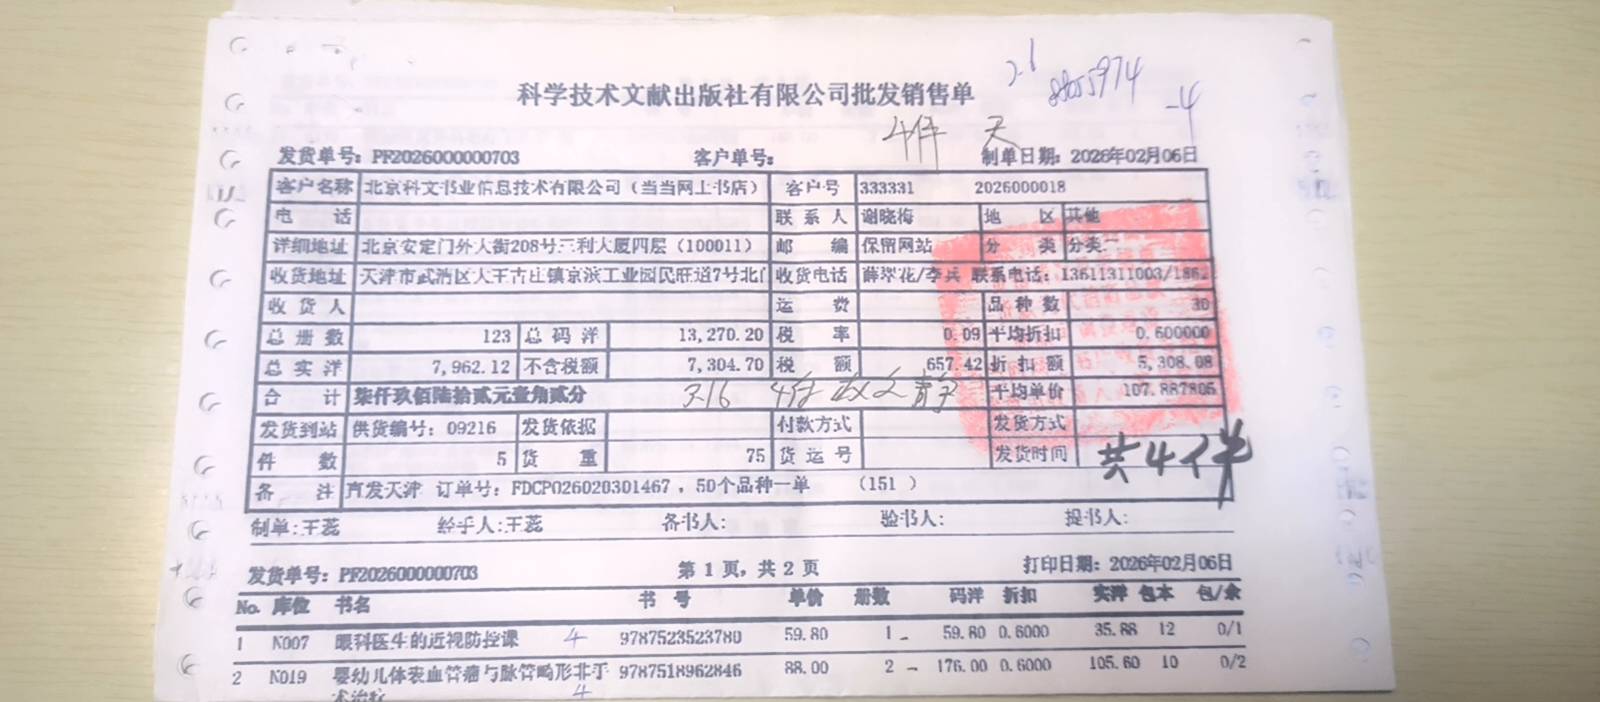 科学技术文献出版社有限公司批发销售单
2.6
8805974
-4
4件 天
发货单号: PF2026000000703 客户单号: 制单日期: 2026年02月06日
客户名称 北京科文书业信息技术有限公司(当当网上书店) 客户号 333331 2026000018
电 话 联系人 谢晓梅 地 区 其他
详细地址 北京安定门外大街208号三利大厦四层(100011) 邮 编 保留网站 分 类 分类二
收货地址 天津市武清区大王古庄镇京滨工业园民旺道7号北 收货电话 薛翠花/李兵 联系电话: 13611311003/186
收货人 运 费 品种数 30
总册数 123 总码洋 13,270.20 税 率 0.09 平均折扣 0.600000
总实洋 7,962.12 不含税额 7,304.70 税 额 657.42 折扣额 5,308.08
合 计 柒仟玖佰陆拾贰元壹角贰分 平均单价 107.887805
3.16 4件
发货到站 供货编号: 09216 发货依据 付款方式 发货方式
件 数 5 货 重 75 货运号 发货时间
共4件
备 注 直发天津 订单号: FDCP026020301467 , 50个品种一单 (151 )
制单:王蕊 经手人:王蕊 备书人: 验书人: 提书人:
发货单号: PF2026000000703 第 1 页, 共 2 页 打印日期: 2026年02月06日
No. 库位 书名 书 号 单价 册数 码洋 折扣 实洋 包本 包/余
1 N007 眼科医生的近视防控课 4 9787523523780 59.80 1 - 59.80 0.6000 35.88 12 0/1
2 N019 婴幼儿体表血管瘤与脉管畸形非手 9787518962846 88.00 2 - 176.00 0.6000 105.60 10 0/2
术治疗 4